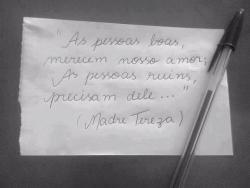 "As pessoas boas,
merecem nosso amor,
As pessoas ruins,
precisam dele..."
(Madre Tereza)